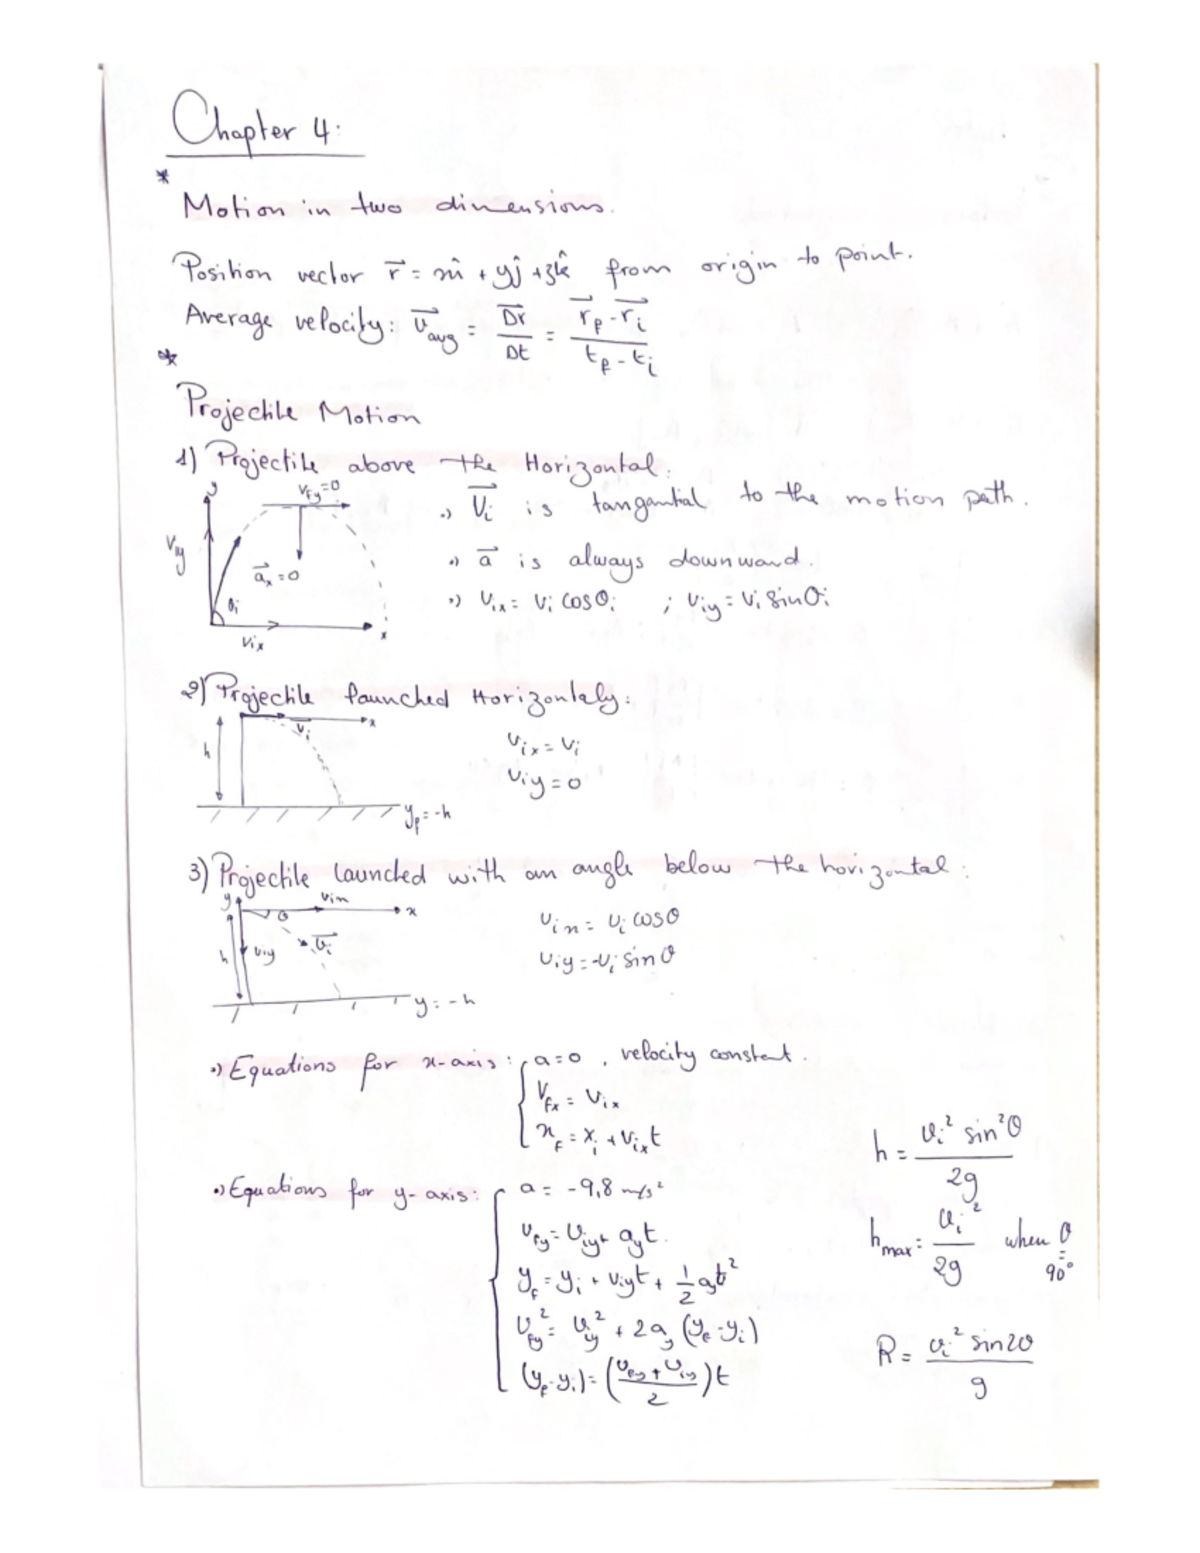 Chapter 4:
*
Motion in two dimensions.
Position vector r⃗ = xî + yĵ + zk̂ from origin to point.
Average velocity: v⃗avg = Dr⃗/Dt = (r⃗f - r⃗i)/(tf - ti)
*
Projectile Motion
1) Projectile above the Horizontal.
y
vfy=0
viy
a⃗x=0
θi
vix
x
•) v⃗i is tangantial to the motion path.
•) a⃗ is always downward.
•) vix = vi cosθi ; viy = vi sinθi
2) Projectile launched Horizontaly:
x
v⃗i
h
yf = -h
vix = vi
viy = 0
3) Projectile launched with an angle below the horizontal:
y
vix
x
θ
v⃗i
viy
h
y = -h
vix = vi cosθ
viy = -vi sinθ
•) Equations for x-axis: a=0, velocity constent.
vfx = vix
xf = xi + vixt
•) Equations for y-axis: a = -9,8 m/s²
vfy = viy + ayt.
yf = yi + viyt + 1/2 ayt²
vfy² = viy² + 2ay (yf - yi)
(yf - yi) = ((vfy + viy)/2)t
h = vi² sin²θ/2g
hmax = vi²/2g when θ = 90°
R = vi² sin2θ/g